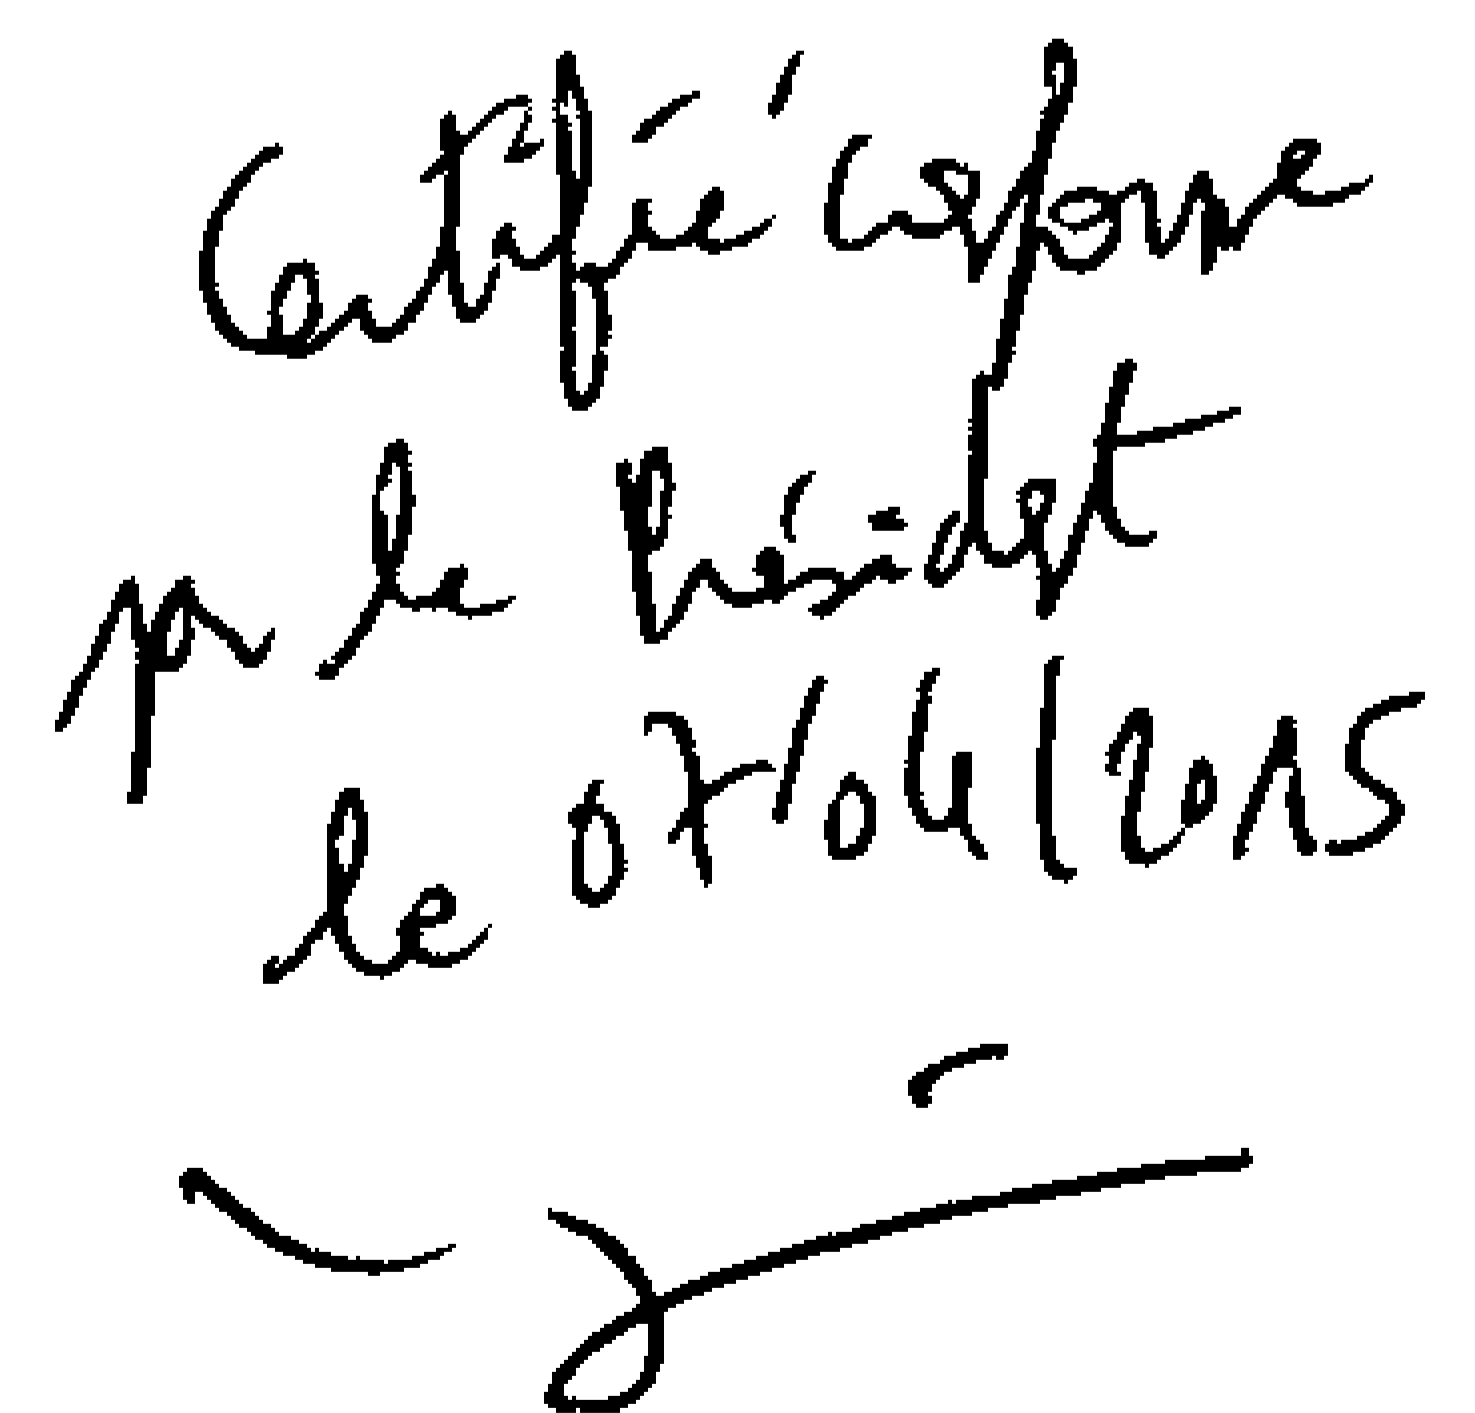 Certifié conforme
par le Président
le 07/04/2015